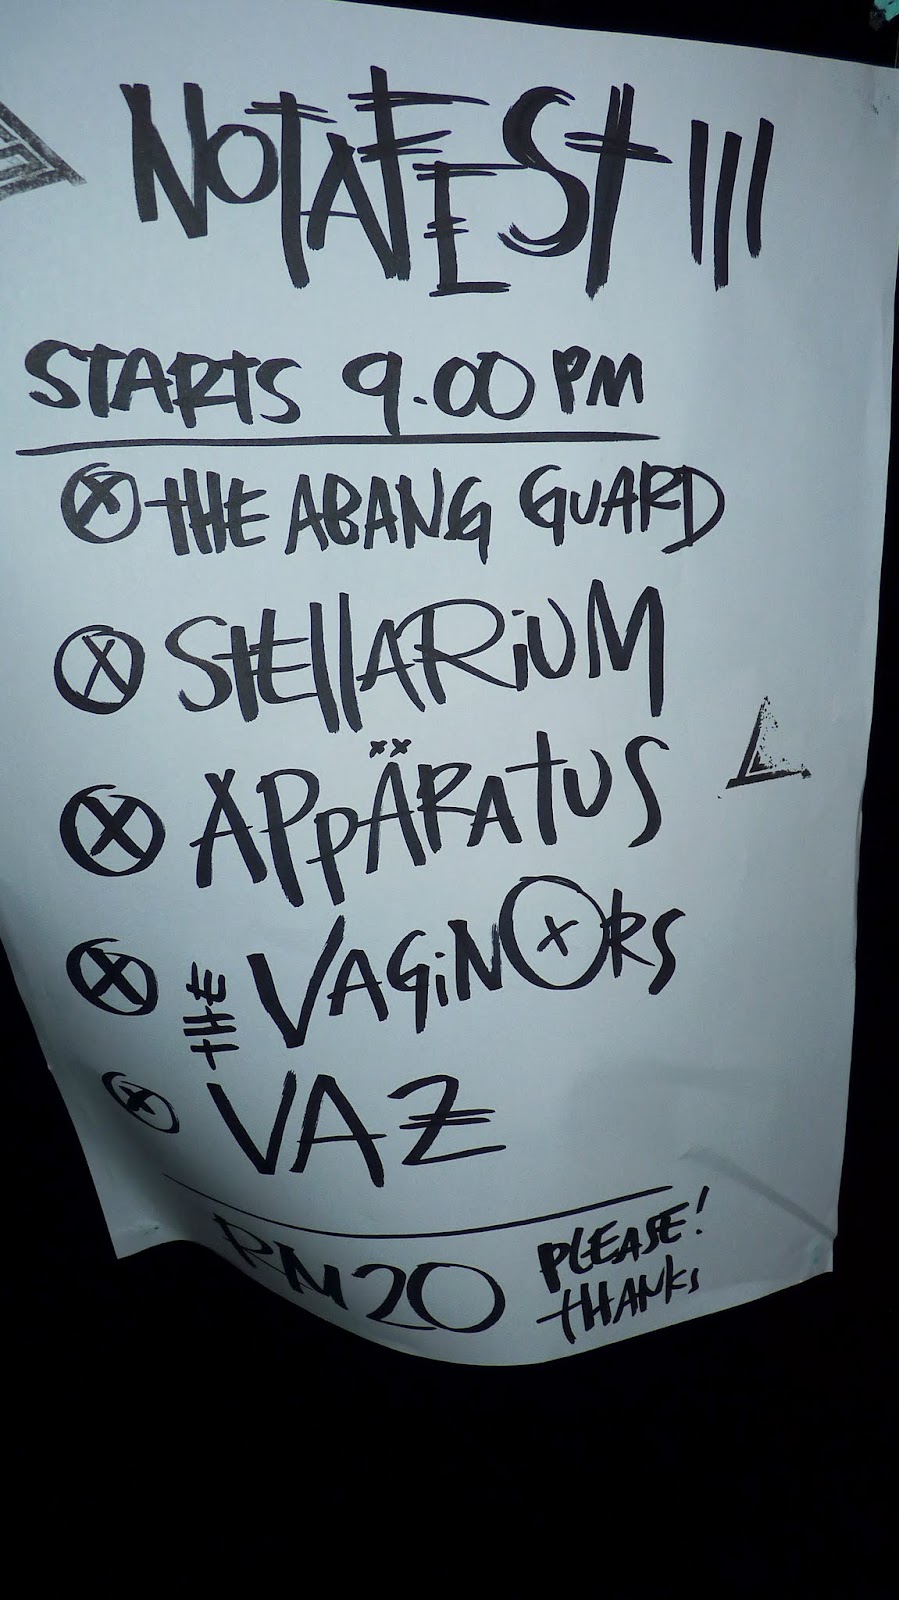 NOTAFEST III
STARTS 9.00 PM
THE ABANG GUARD
STELLARiUM
APPÄRATUS
THE VAGiNORS
VAZ
RM20 PLEASE!
THANKS